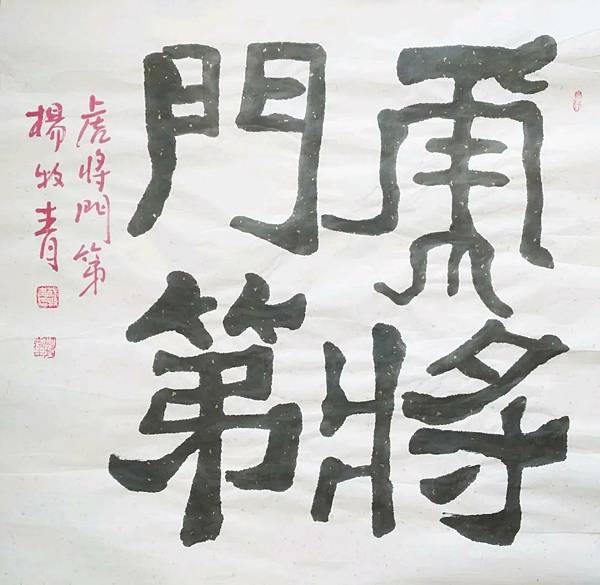 虎將
門第
虎將門第
楊牧青